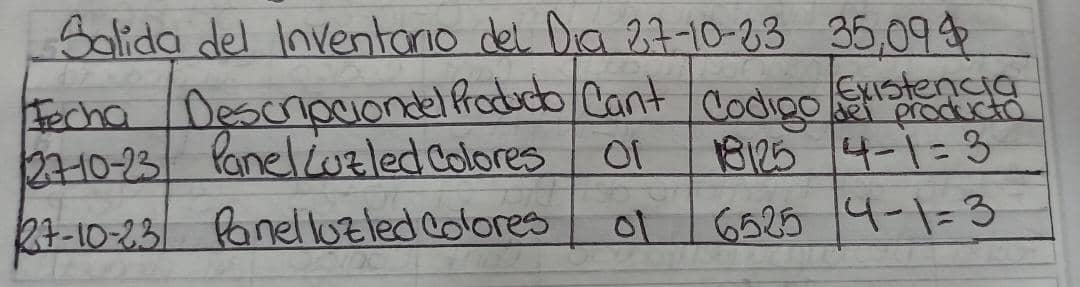 Salida del Inventario del Dia 27-10-23 35,09$
Fecha Descripcion del Producto Cant Codigo Existencia del producto
27-10-23 Panel Luz led Colores 01 18125 4-1=3
27-10-23 Panel luz led Colores 01 6525 4-1=3